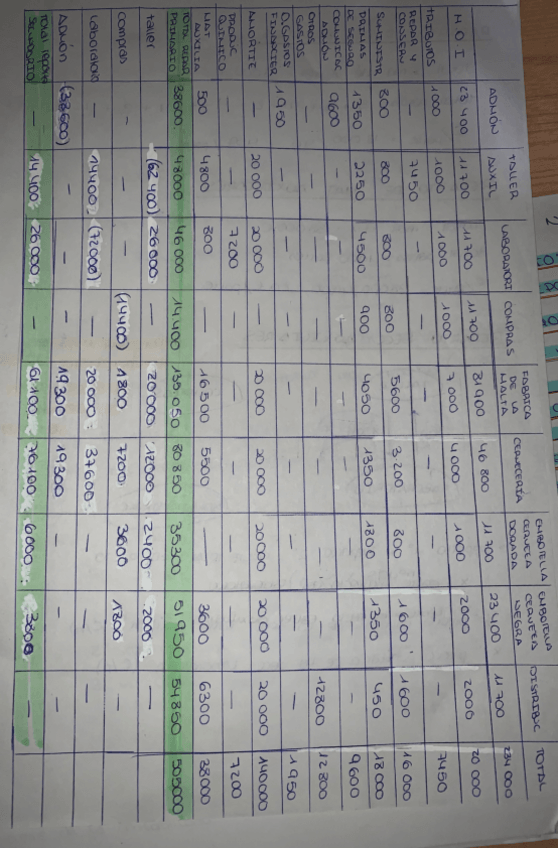 ADMÓN TALLER AUXIL LABORATORI COMPRAS FABRICA DE LA MALTA CERVECERIA EMBOTELLA CERVEZA DORADA EMBOTELLA CERVEZA NEGRA DISTRIBUC TOTAL
M O I 23400 11700 11700 11700 81900 46800 11700 23400 11700 234000
TRIBUTOS 1000 1000 1000 1000 7000 4000 1000 2000 2000 20000
REPAR Y CONSERV — 7450 — — — — — — — 7450
SUMINISTR 800 800 800 800 5600 3200 800 1600 1600 16000
PRIMAS DE SEGURO 1350 2250 4500 900 4050 1350 1800 1350 450 18000
COMUNICAC ADMÓN 9600 — — — — — — — — 9600
OTROS GASTOS — — — — — — — — 12800 12800
O.GASTOS FINANCIER 1950 — — — — — — — — 1950
AMORTIZ — 20000 20000 — 20000 20000 20000 20000 20000 140000
PRODUC QUIMICO — — 7200 — — — — — — 7200
MAT AUXILIA 500 4800 800 — 16500 5500 — 3600 6300 38000
TOTAL REPAR PRIMARIO 38600 48000 46000 14400 135050 80850 35300 51950 54850 505000
taller — (62400) 26000 — 20000 12000 2400 2000 —
compras — — — (14400) 1800 7200 3600 1800 —
laboratorio — 14400 (72000) — 20000 37600 — — —
Admón (38600) — — — 19300 19300 — — —
TOTAL REPARTO SECUNDARIO — 14400 26000 — 61100 76100 6000 3800 —